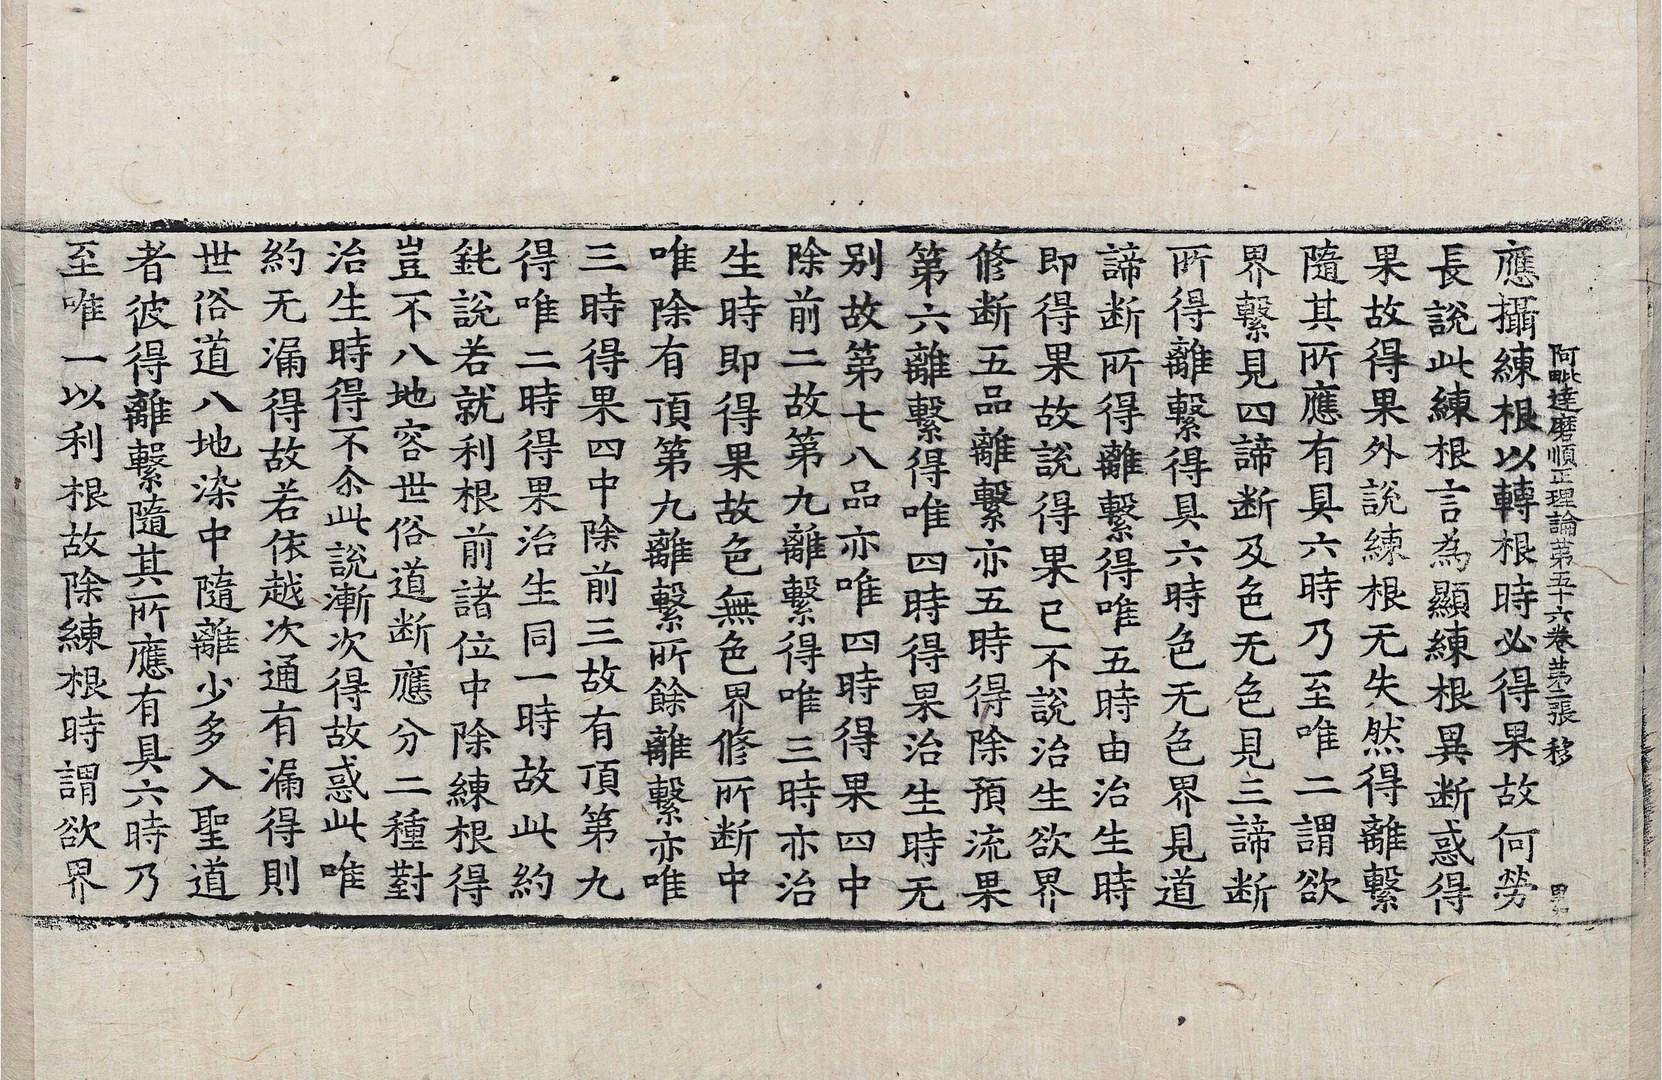 阿毗達磨順正理論第五十六卷第二張 移
應攝練根以轉根時必得果故何勞
長說此練根言為顯練根異断惑得
果故得果外說練根无失然得離繫
隨其所應有具六時乃至唯二謂欲
界繫見四諦断及色无色見三諦断
所得離繫得具六時色无色界見道
諦断所得離繫得唯五時由治生時
即得果故說得果已不說治生欲界
修断五品離繫亦五時得除預流果
第六離繫得唯四時得果治生時无
别故第七八品亦唯四時得果四中
除前二故第九離繫得唯三時亦治
生時即得果故色無色界修所断中
唯除有頂第九離繫所餘離繫亦唯
三時得果四中除前三故有頂第九
得唯二時得果治生同一時故此約
鈍說若就利根前諸位中除練根得
豈不八地容世俗道断應分二種對
治生時得不尒此說漸次得故惑此唯
約无漏得故若依越次通有漏得則
世俗道八地染中隨離少多入聖道
者彼得離繫隨其所應有具六時乃
至唯一以利根故除練根時謂欲界